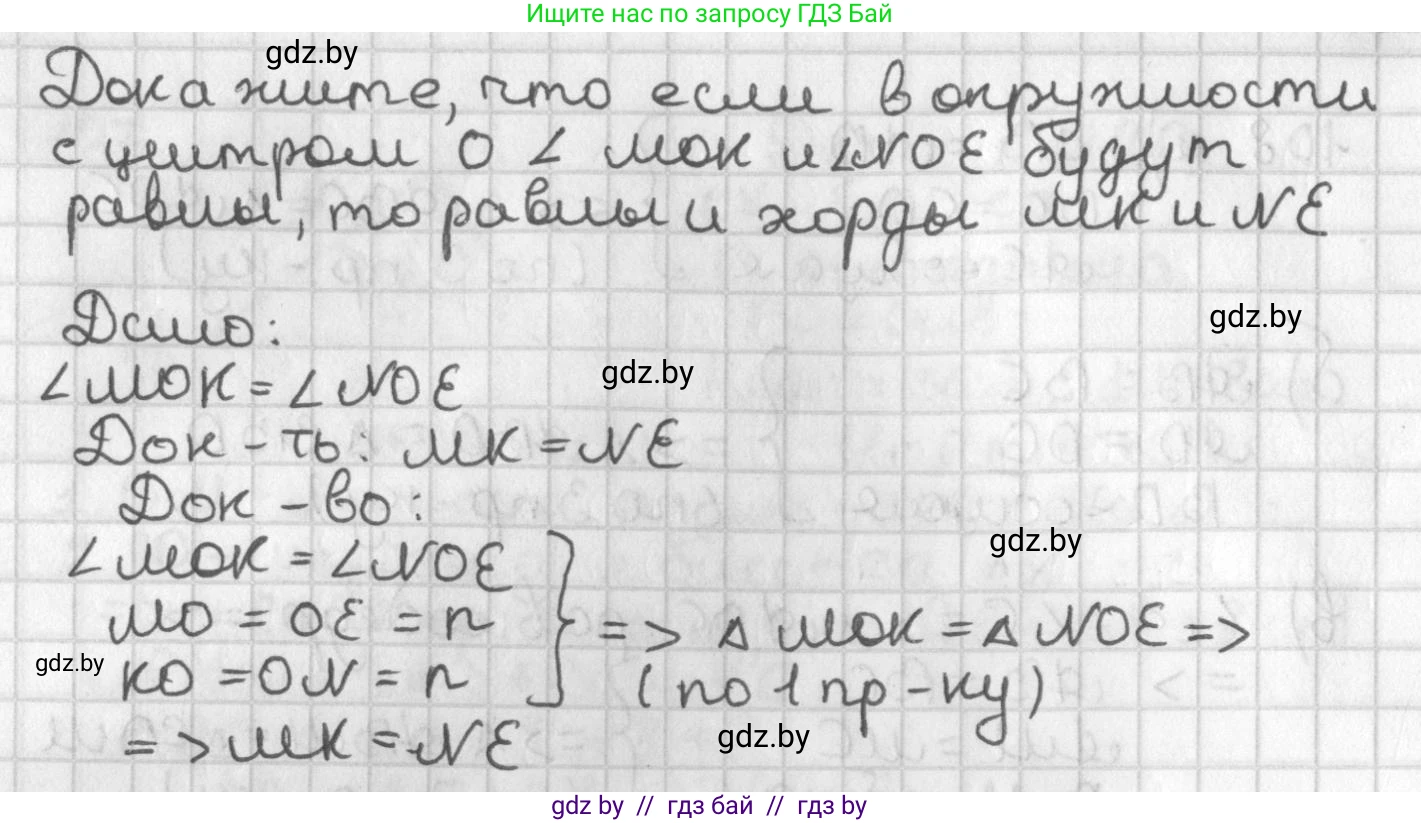 Ищите нас по запросу ГДЗ Бай
gdz.by
Докажите, что если в окружности
с центром О ∠ МОК и ∠NOE будут
равны, то равны и хорды МК и NE
Дано:
gdz.by
∠МОК = ∠NOE
gdz.by
Док-ть: МК = NE
Док-во:
∠МОК = ∠NOE
gdz.by
МО = ОЕ = r
КО = ON = r
=> Δ МОК = Δ NOE =>
(по 1 пр-ку)
gdz.by
=> МК = NE
gdz.by
gdz by // гдз бай // гдз by